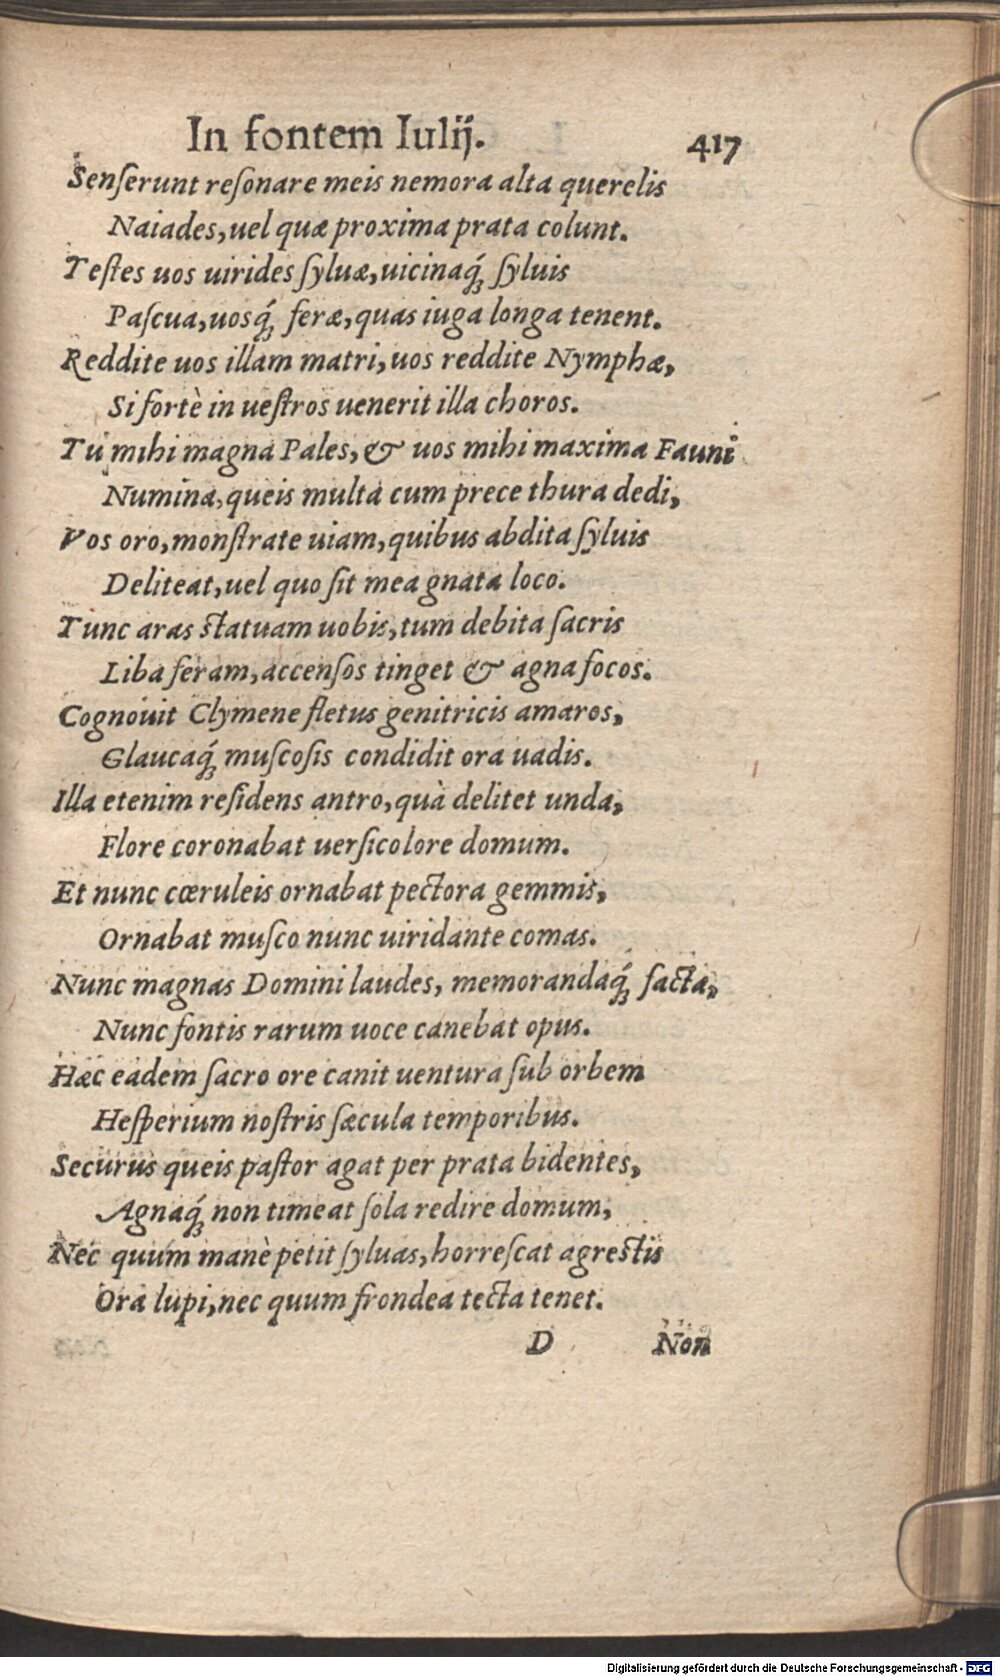 In fontem Iulij. 417
Senſerunt reſonare meis nemora alta querelis
Naiades, uel quæ proxima prata colunt.
Teſtes uos uirides ſyluæ, uicinaq́; ſyluis
Paſcua, uosq́; feræ, quas iuga longa tenent.
Reddite uos illam matri, uos reddite Nymphæ,
Si fortè in ueſtros uenerit illa choros.
Tu mihi magna Pales, & uos mihi maxima Fauni
Numina, queis multa cum prece thura dedi,
Vos oro, monſtrate uiam, quibus abdita ſyluis
Deliteat, uel quo ſit mea gnata loco.
Tunc aras ſtatuam uobis, tum debita ſacris
Liba feram, accenſos tinget & agna focos.
Cognouit Clymene fletus genitricis amaros,
Glaucaq́; muſcoſis condidit ora uadis.
Illa etenim reſidens antro, quà delitet unda,
Flore coronabat uerſicolore domum.
Et nunc cœruleis ornabat pectora gemmis,
Ornabat muſco nunc uiridante comas.
Nunc magnas Domini laudes, memorandaq́; facta,
Nunc fontis rarum uoce canebat opus.
Hæc eadem ſacro ore canit uentura ſub orbem
Heſperium noſtris ſæcula temporibus.
Securus queis paſtor agat per prata bidentes,
Agnaq́; non timeat ſola redire domum,
Nec quum manè petit ſyluas, horreſcat agreſtis
Ora lupi, nec quum frondea tecta tenet.
D Non
Digitalisierung gefördert durch die Deutsche Forschungsgemeinschaft - DFG